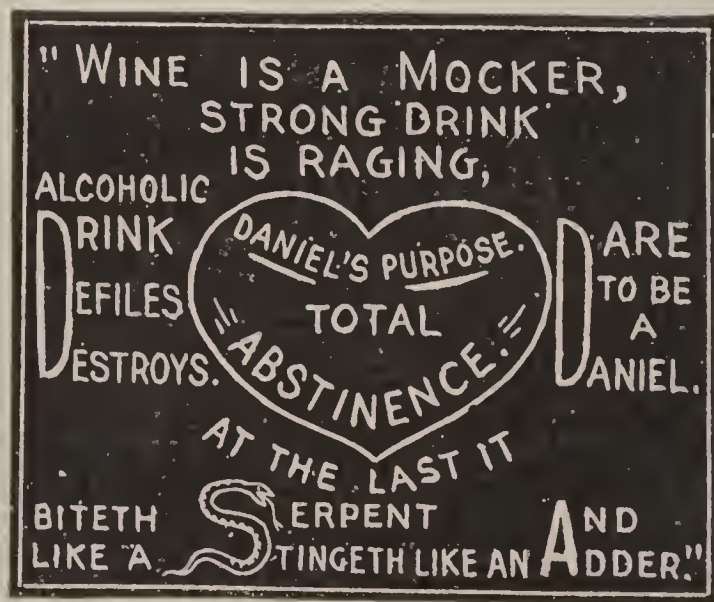 "WINE IS A MOCKER,
STRONG DRINK
IS RAGING,
ALCOHOLIC
DRINK
DEFILES
DESTROYS.
DANIEL'S PURPOSE.
TOTAL
ABSTINENCE.
DARE
TO BE
A
DANIEL.
AT THE LAST IT
BITETH LIKE A SERPENT AND
STINGETH LIKE AN ADDER."